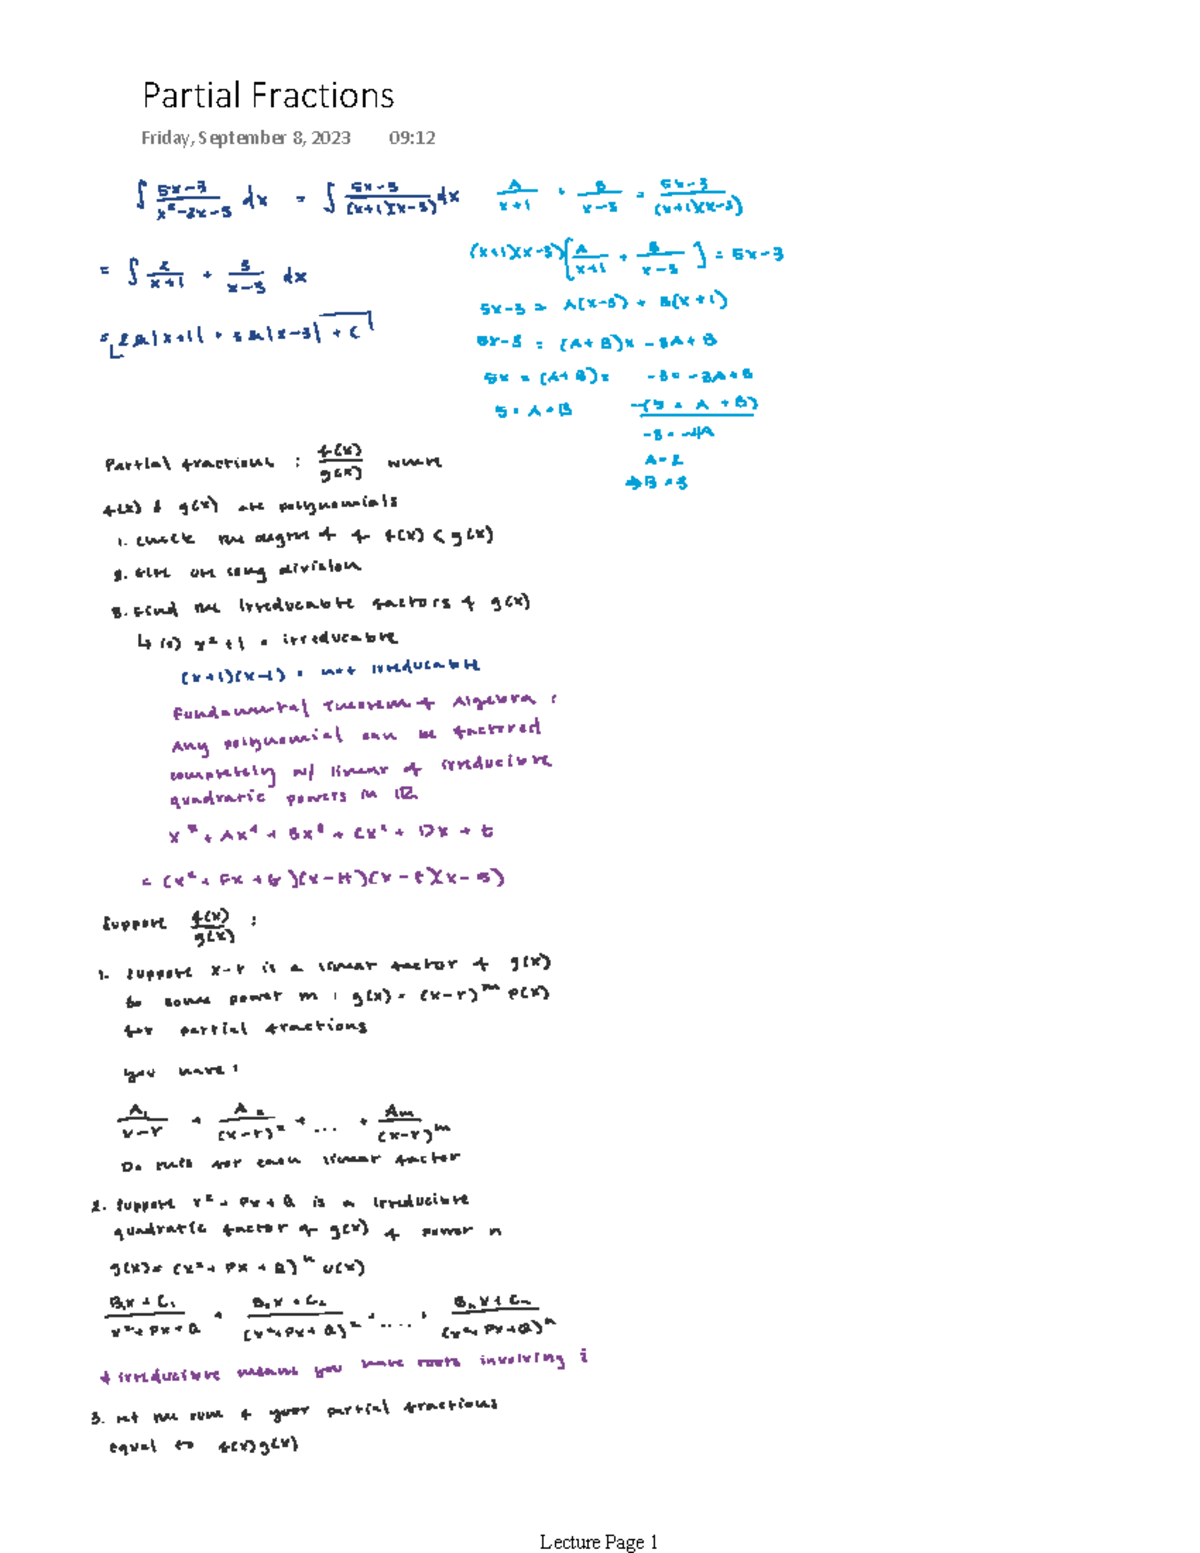 Partial Fractions
Friday, September 8, 2023 09:12
∫ (5x-3)/(x²-2x-3) dx = ∫ (5x-3)/((x+1)(x-3)) dx
= ∫ 2/(x+1) + 3/(x-3) dx
= 2 ln|x+1| + 3 ln|x-3| + C
A/(x+1) + B/(x-3) = (5x-3)/((x+1)(x-3))
(x+1)(x-3)[A/(x+1) + B/(x-3)] = 5x-3
5x-3 = A(x-3) + B(x+1)
5x-3 = (A+B)x - 3A + B
5x = (A+B)x -3 = -3A+B
5 = A+B -(5 = A + B)
-8 = -4A
A = 2
→ B = 3
Partial fractions : f(x)/g(x) where
f(x) & g(x) are polynomials
1. Check the degree of f(x) < g(x)
2. Else use long division
3. Find the irreducable factors of g(x)
↳ x²+1 = irreducable
(x+1)(x-1) = not irreducable
Fundamental Theorem of Algebra :
Any polynomial can be factored
completely w/ linear & irreducible
quadratic powers in ℝ
x⁵ + Ax⁴ + Bx³ + Cx² + Dx + E
= (x² + Fx + G)(x-H)(x-t)(x-s)
Suppose f(x)/g(x) :
1. Suppose x-r is a linear factor of g(x)
to some power m : g(x) = (x-r)^m p(x)
for partial fractions
you have :
A₁/(x-r) + A₂/(x-r)² + ... + Aₘ/(x-r)^m
Do this for each linear factor
2. Suppose x² + Px + Q is a irreducible
quadratic factor of g(x) of power n
g(x) = (x² + Px + Q)^n u(x)
(B₁x + C₁)/(x²+Px+Q) + (B₂x + C₂)/(x²+Px+Q)² + .... + (Bₙx + Cₙ)/(x²+Px+Q)^n
* irreducible means you have roots involving i
3. Set the sum of your partial fractions
equal to f(x)g(x)
Lecture Page 1